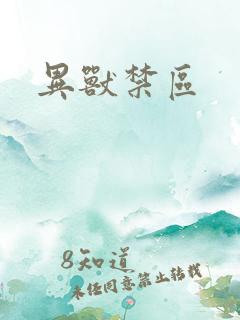 異獸禁區
8知道
未经同意禁止转载